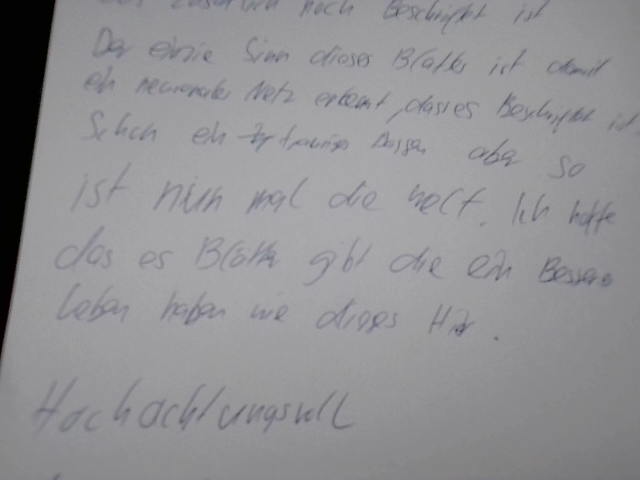 das zusätzlich noch Beschriftet ist
Der einzie Sinn dieses Blattes ist damit
ein neuronales Netz erkennt, dass es Beschriftet ist
Schon ein trauriges Dasein aber so
ist nun mal die Welt. Ich hoffe
das es Blätter gibt die ein Besseres
Leben haben wie dieses Hir.
Hochachtungsvoll